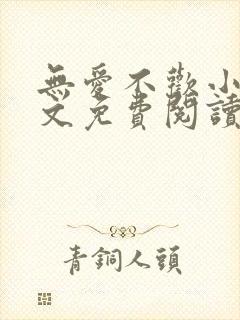 無愛不歡小
文免費閱讀
青銅人頭